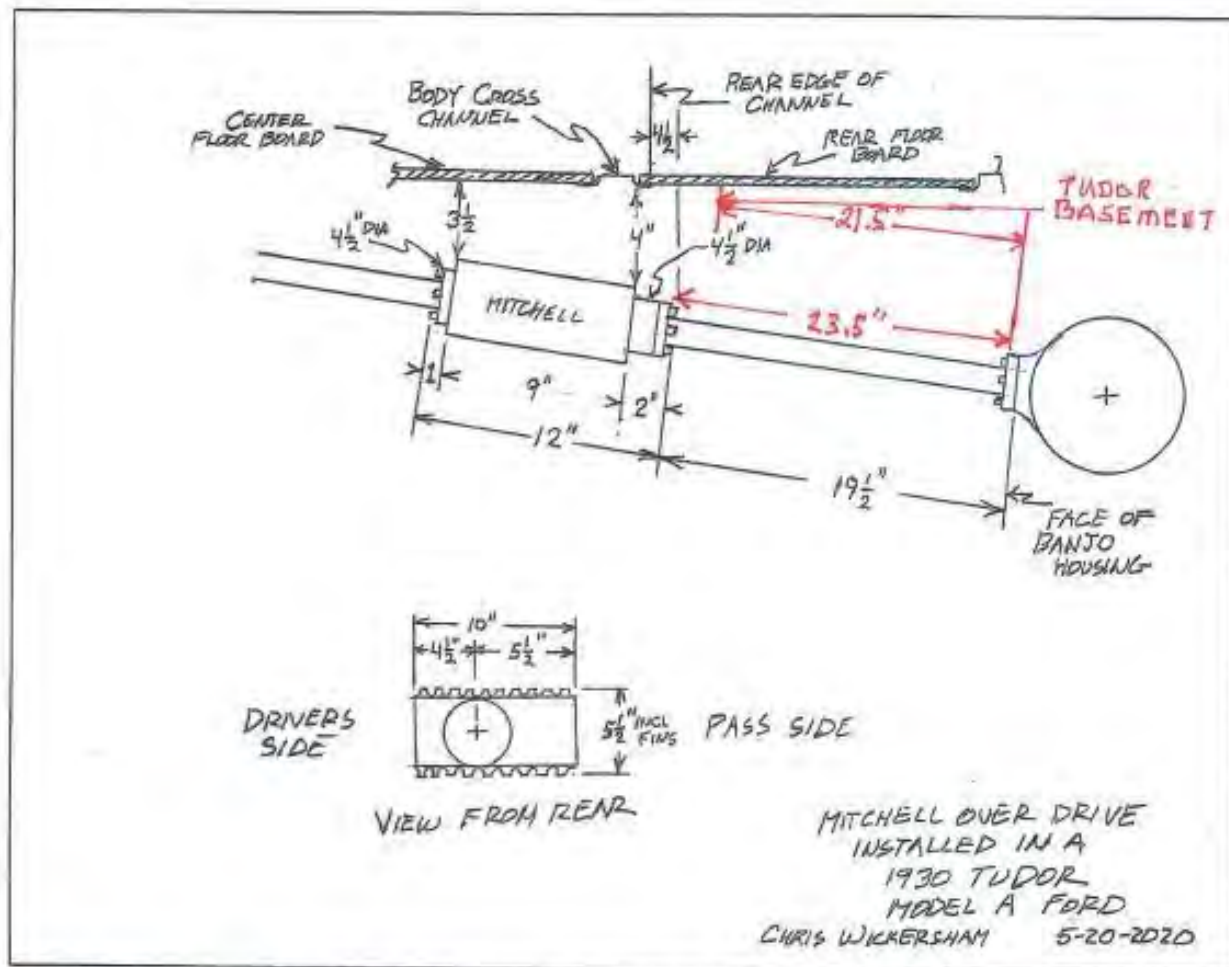 REAR EDGE OF
CHANNEL
BODY CROSS
CHANNEL
CENTER
FLOOR BOARD
4 1/2
REAR FLOOR
BOARD
TUDOR
BASEMENT
3 1/2
4 1/2" DIA
4"
4 1/2" DIA
21.5"
MITCHELL
23.5"
1
9"
2"
12"
19 1/2"
FACE OF
BANJO
HOUSING
10"
4 1/2"
5 1/2"
DRIVERS
SIDE
5 1/2" INCL
FINS
PASS SIDE
VIEW FROM REAR
MITCHELL OVER DRIVE
INSTALLED IN A
1930 TUDOR
MODEL A FORD
CHRIS WICKERSHAM 5-20-2020